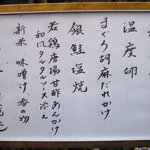 温度卵
まぐろ胡麻だれかけ
銀鮭塩焼
若鶏唐揚甘酢あんかけ
和風タルタルソース添え
新米 味噌汁 香の物